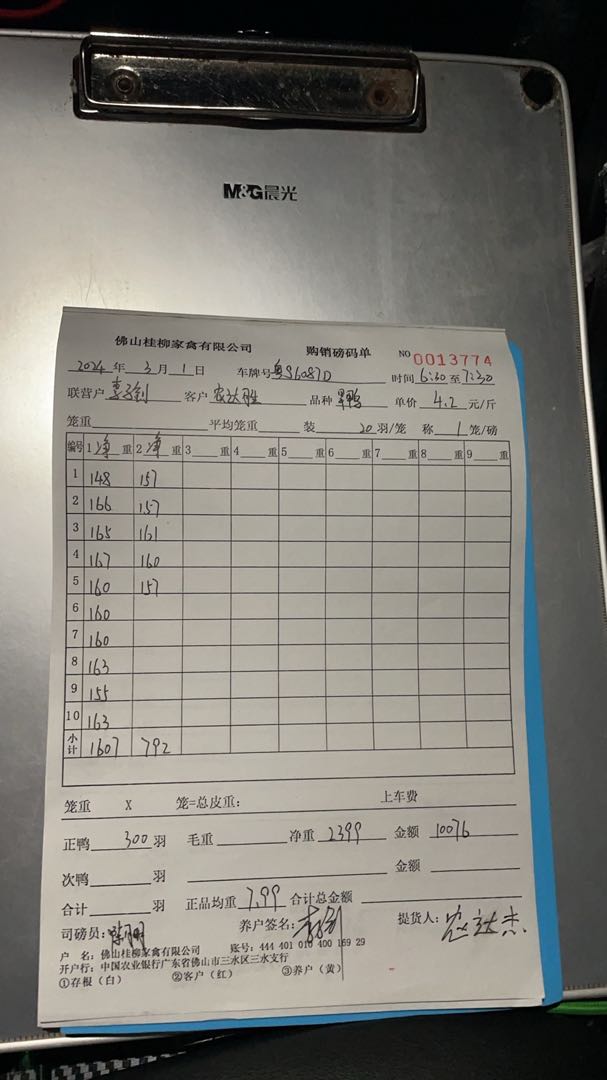 M&G晨光
佛山桂柳家禽有限公司 购销磅码单 NO 0013774
2024年3月1日 车牌号粤S6087D 时间6:30至7:30
联营户 客户农达胜 品种 单价4.2元/斤
笼重 平均笼重 装20羽/笼 称1笼/磅
编号 1净重 2净重 3重 4重 5重 6重 7重 8重 9重
1 148 157
2 166 157
3 165 161
4 167 160
5 160 157
6 160
7 160
8 163
9 155
10 163
小计 1607 792
笼重 X 笼=总皮重： 上车费
正鸭300羽 毛重 净重2399 金额10076
次鸭 羽 金额
合计 羽 正品均重7.99 合计总金额
司磅员： 养户签名： 提货人：农达杰
户 名：佛山桂柳家禽有限公司 账号：444 401 010 400 169 29
开户行：中国农业银行广东省佛山市三水区三水支行
①存根（白） ②客户（红） ③养户（黄）